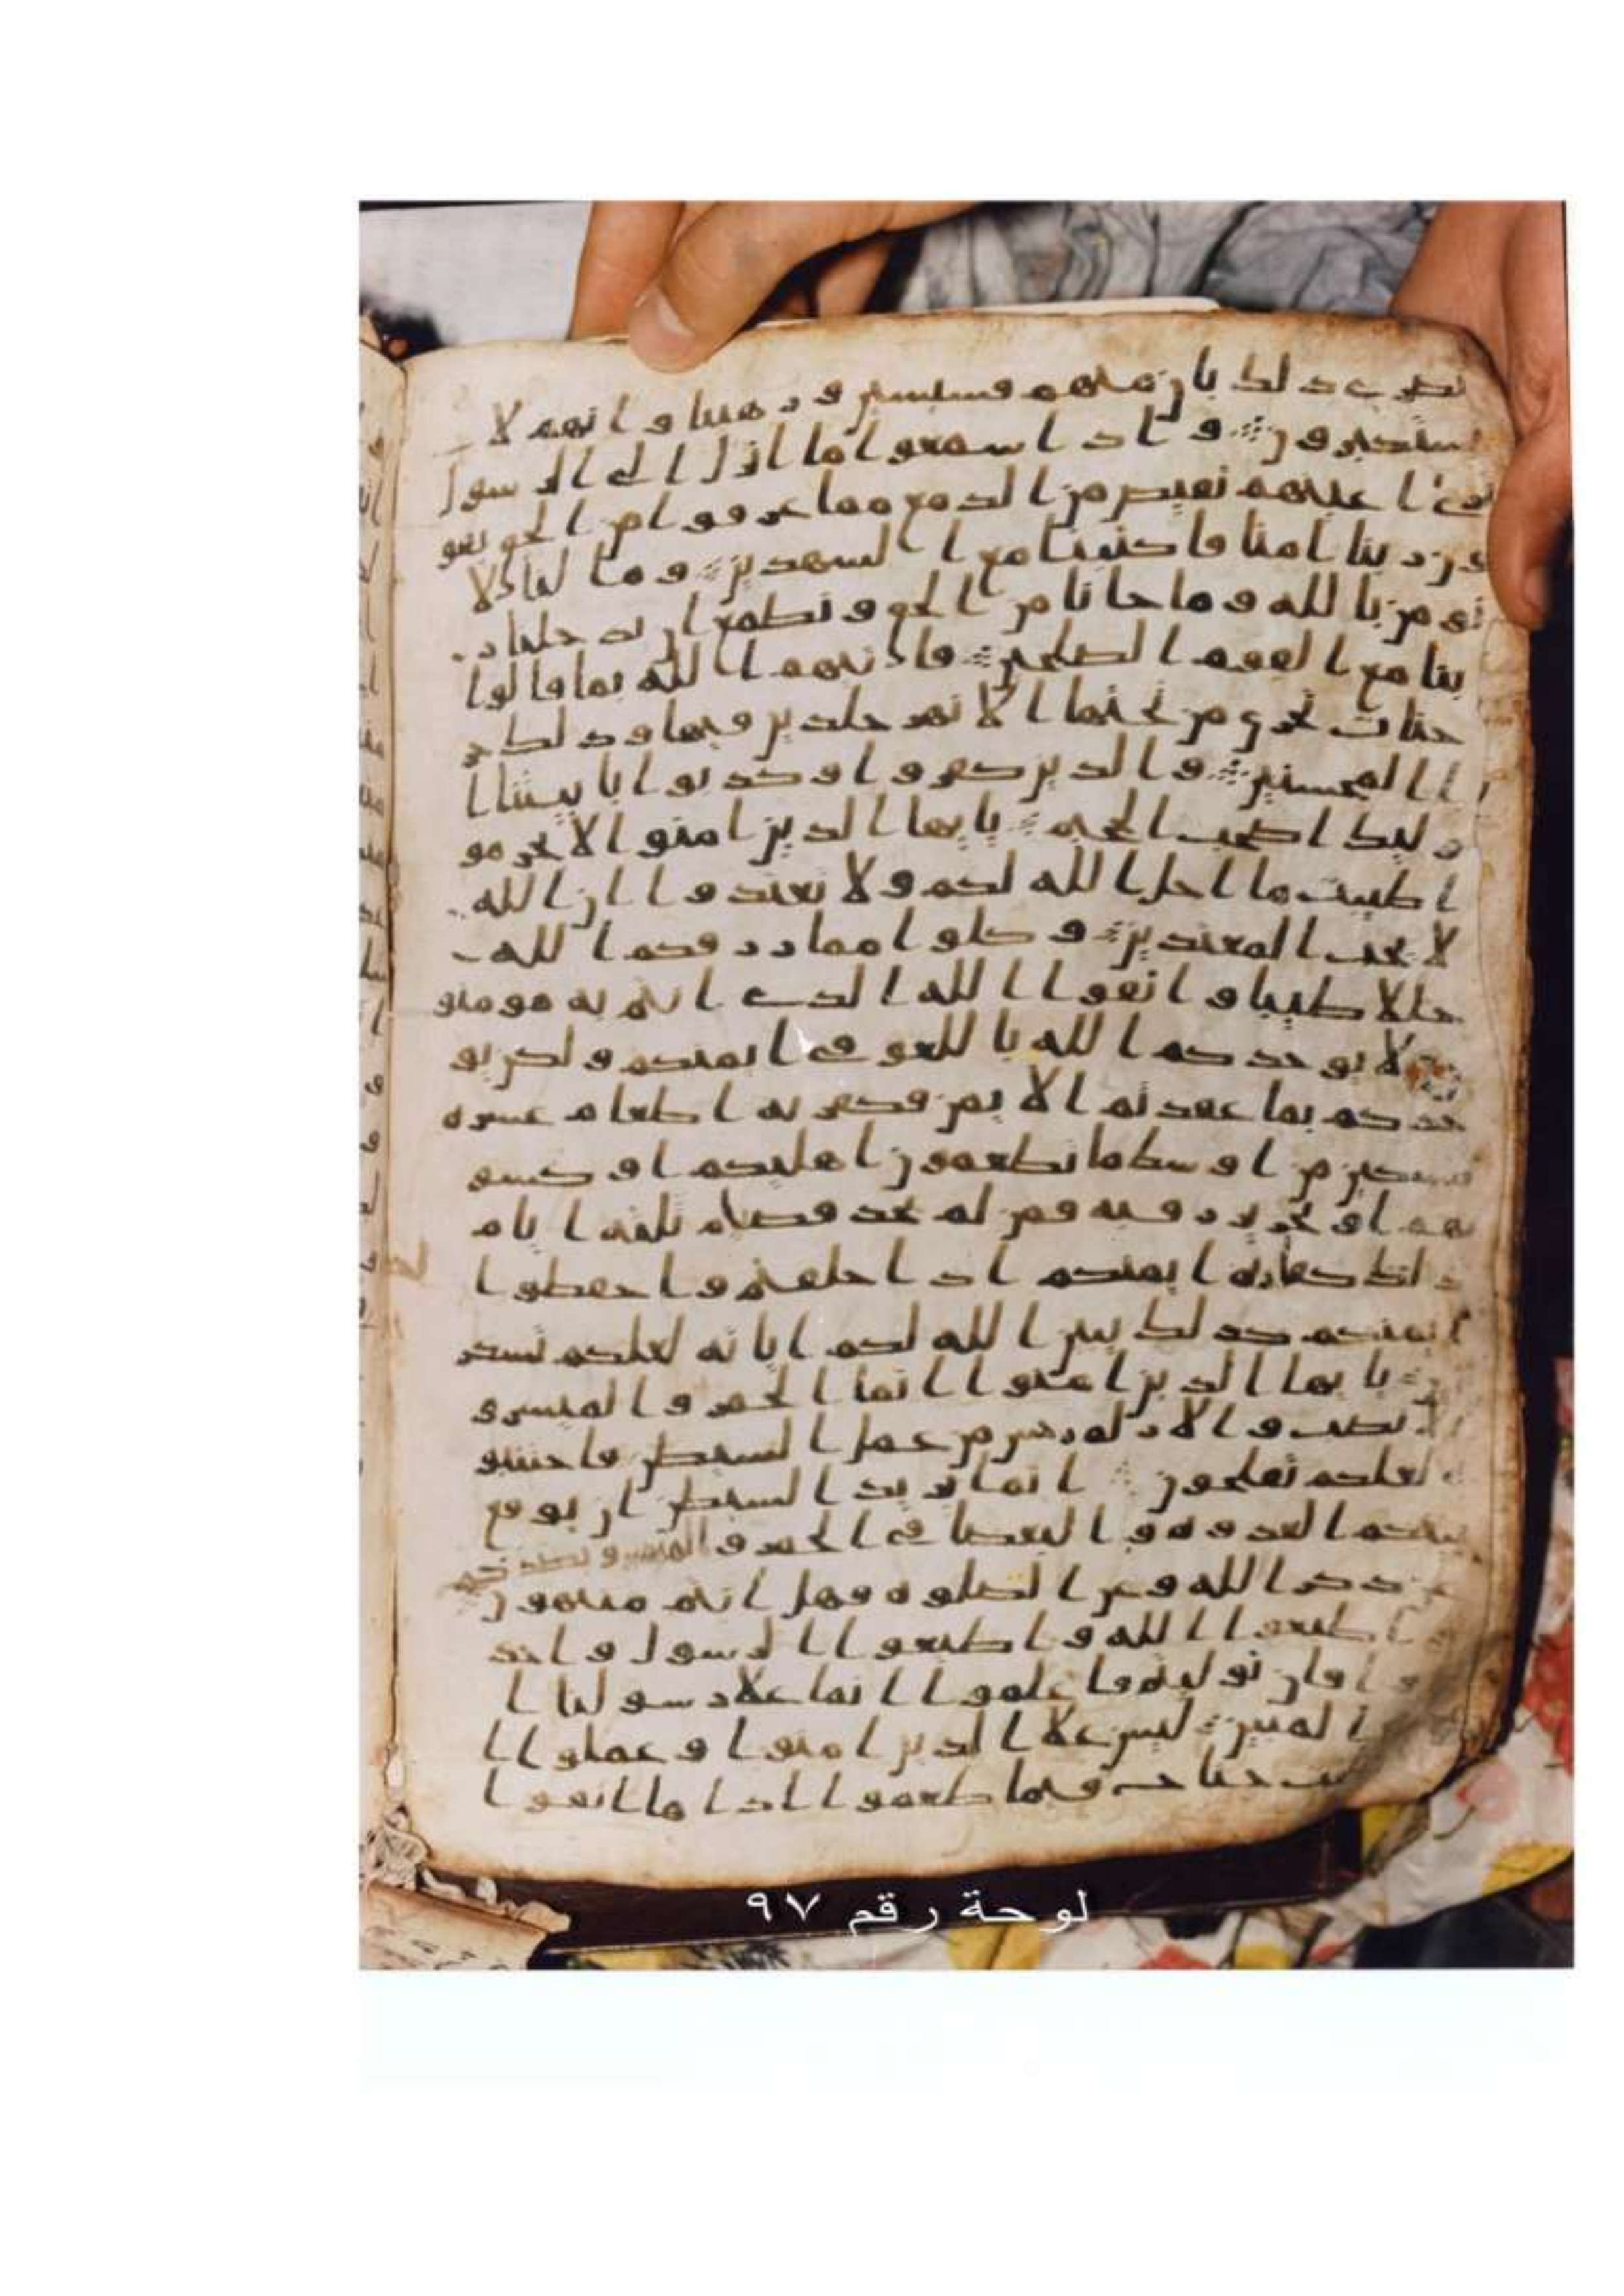 نصرى ذلك بان منهم قسيسين و رهبنا و انهم لا
يستكبرون و اذا سمعوا ما انزل الى الرسول
ترى ا عينهم تفيض من الدمع مما عرفوا من الحق يقو
لون ربنا امنا فاكتبنا مع الشهدين و ما لنا لا
نومن بالله و ما جانا من الحق و نطمع ان يدخلنا ر
بنا مع القوم الصلحين فاثبهم الله بما قالوا
جنات تجرى من تحتها الانهر خلدين فيها و ذلك جز
ا المحسنين و الذين كفروا و كذبوا باييتنا ا
و ليك اصحب الجحيم يايها الذين امنوا لا تحرمو
ا طيبت ما احل الله لكم و لا تعتدوا ان الله
لا يحب المعتدين و كلوا مما رزقكم الله
حللا طيبا و اتقوا الله الذى انتم به مومنو
ن لا يوخذكم الله باللغو فى ايمنكم و لكن يو
خذكم بما عقدتم الايمن فكفرته اطعام عشره
مسكين من اوسط ما تطعمون اهليكم او كسو
تهم او تحرير رقبه فمن لم يجد فصيام ثلثه ايام
ذلك كفاره ايمنكم اذا حلفتم و احفظوا
ايمنكم كذلك يبين الله لكم اياته لعلكم تشكر
ون يايها الذين امنوا انما الخمر و الميسر و
الانصب و الازلم رجس من عمل الشيطن فاجتنبو
ه لعلكم تفلحون انما يريد الشيطن ان يوقع
بينكم العدوه و البغضا فى الخمر و الميسر و يصدكم
عن ذكر الله و عن الصلوه فهل انتم منتهون
و اطيعوا الله و اطيعوا الرسول و احذ
روا فان توليتم فاعلموا انما علا رسولنا ا
لبلغ المبين ليس علا الذين امنوا و عملوا ا
لصلحت جناح فيما طعموا اذا ما اتقوا
لوحة رقم ٩٧